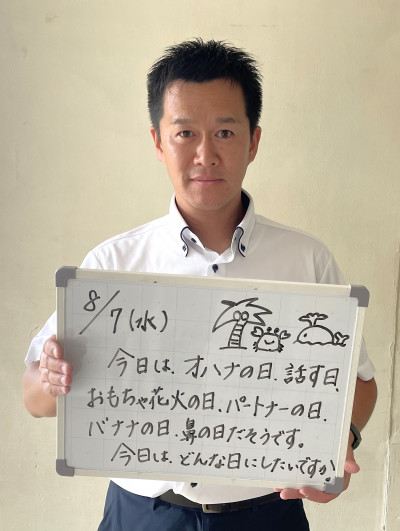 8/7(水)
今日は、オハナの日、話す日、
おもちゃ花火の日、パートナーの日、
バナナの日、鼻の日だそうです。
今日は、どんな日にしたいですか?